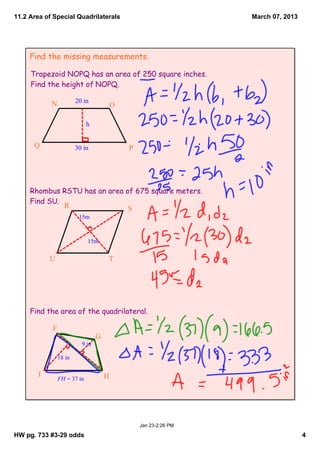 11.2 Area of Special Quadrilaterals
March 07, 2013
Find the missing measurements.
Trapezoid NOPQ has an area of 250 square inches.
Find the height of NOPQ.
N 20 in O
h
Q 30 in P
A = 1/2 h (b1 + b2)
250 = 1/2 h (20 + 30)
250 = 1/2 h 50
2
250 = 25h
25
h = 10 in
Rhombus RSTU has an area of 675 square meters.
Find SU.
R S
15m
15m
U T
A = 1/2 d1 d2
675 = 1/2 (30) d2
15 15 d2
45 = d2
Find the area of the quadrilateral.
F
G
9 in
18 in
J FH = 37 in H
△ A = 1/2 (37)(9) = 166.5
△A = 1/2 (37)(18) = 333
A = 499.5 in²
Jan 23­2:26 PM
HW pg. 733 #3-29 odds
4